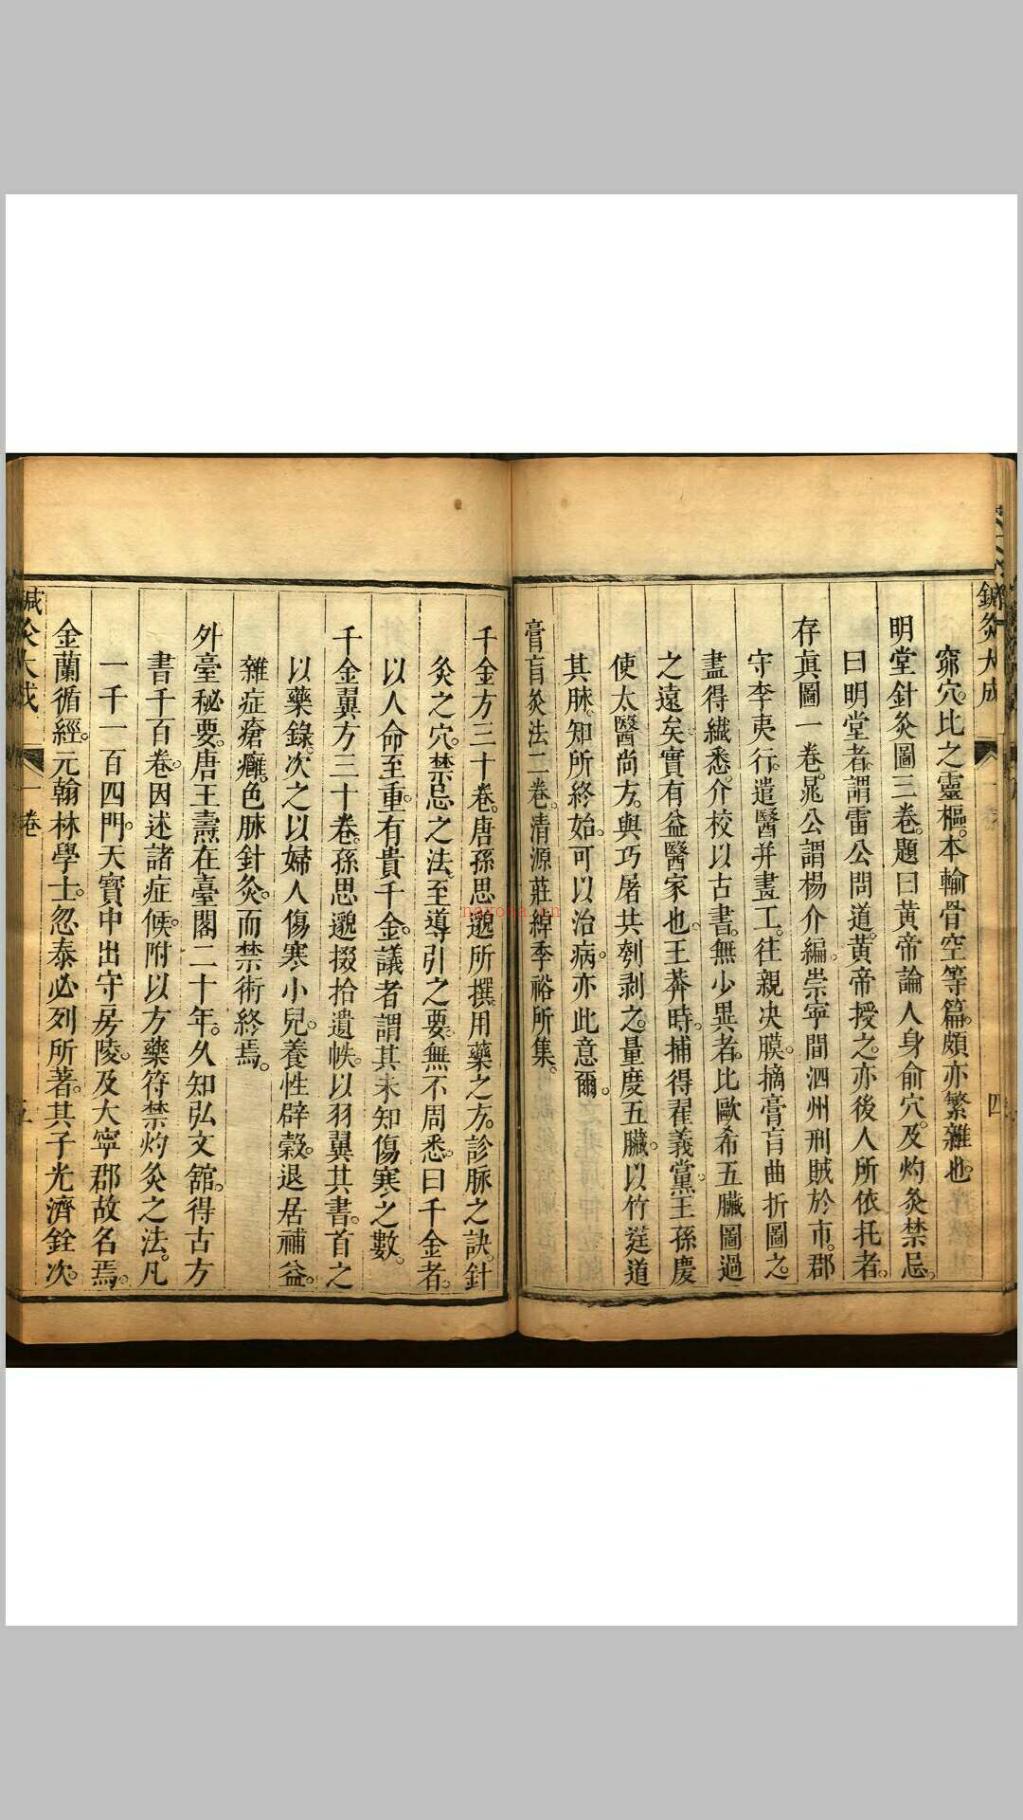 鍼灸大成
四
窌穴比之靈樞本輸骨空等篇頗亦繁雜也。
明堂針灸圖三卷。題曰黃帝論人身俞穴。及灼灸禁忌。
曰明堂者。謂雷公問道。黃帝授之。亦後人所依托者。
存眞圖一卷。晁公謂楊介編。崇寧間泗州刑賊於市。郡
守李夷行。遣醫并畫工。往親决膜。摘膏肓曲折圖之
盡得纎悉。介校以古書。無少異者。比歐希五臟圖過
之遠矣。實有益醫家也。王莽時。捕得翟義黨。王孫慶
使太醫尚方。與巧屠共刳剥之。量度五臟。以竹筳道
其脉。知所終始。可以治病。亦此意爾。
膏肓灸法二卷。清源莊綽季裕所集。
千金方三十卷。唐孫思邈所撰。用藥之方。診脉之訣。針
灸之穴。禁忌之法。至導引之要。無不周悉。曰千金者。
以人命至重。有貴千金。議者謂其未知傷寒之數。
千金翼方三十卷。孫思邈掇拾遺帙。以羽翼其書。首之
以藥錄。次之以婦人傷寒小兒。養性辟穀。退居補益。
雜症瘡癰。色脉針灸。而禁術終焉。
外臺秘要。唐王燾在臺閣二十年。久知弘文舘。得古方
書千百卷。因述諸症候。附以方藥符禁灼灸之法。凡
一千一百四門。天寶中出守房陵。及大寧郡故名焉。
金蘭循經。元翰林學士。忽泰必列所著。其子光濟銓次。
鍼灸大成
一卷
五
nayona.cn